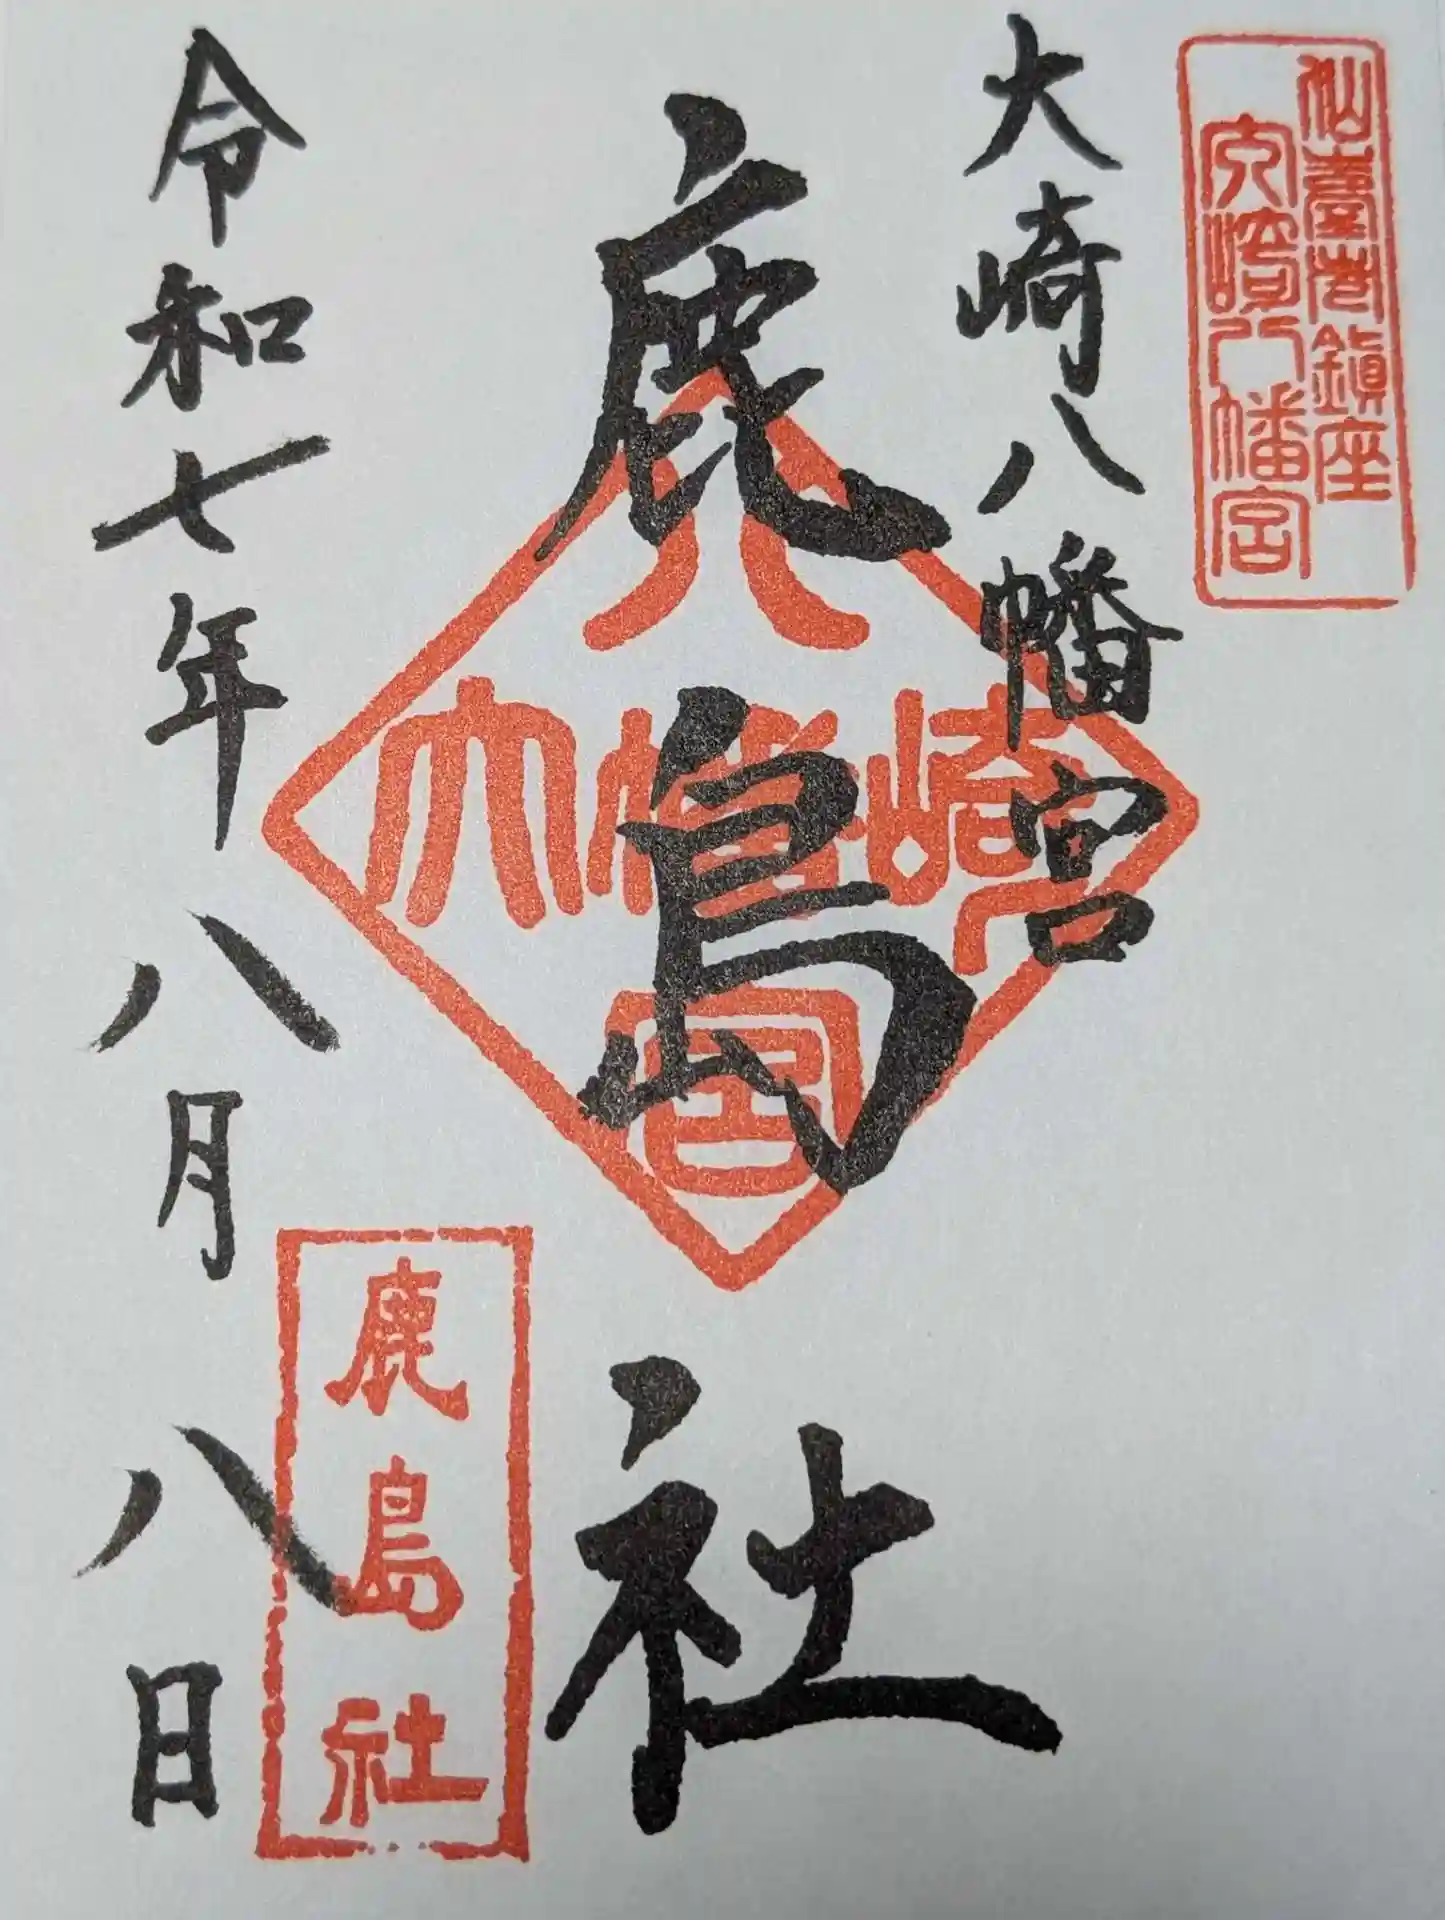 仙臺総鎮座
大崎八幡宮
大崎八幡宮
鹿島社
八
大幡崎
宮
鹿島社
令和七年八月八日